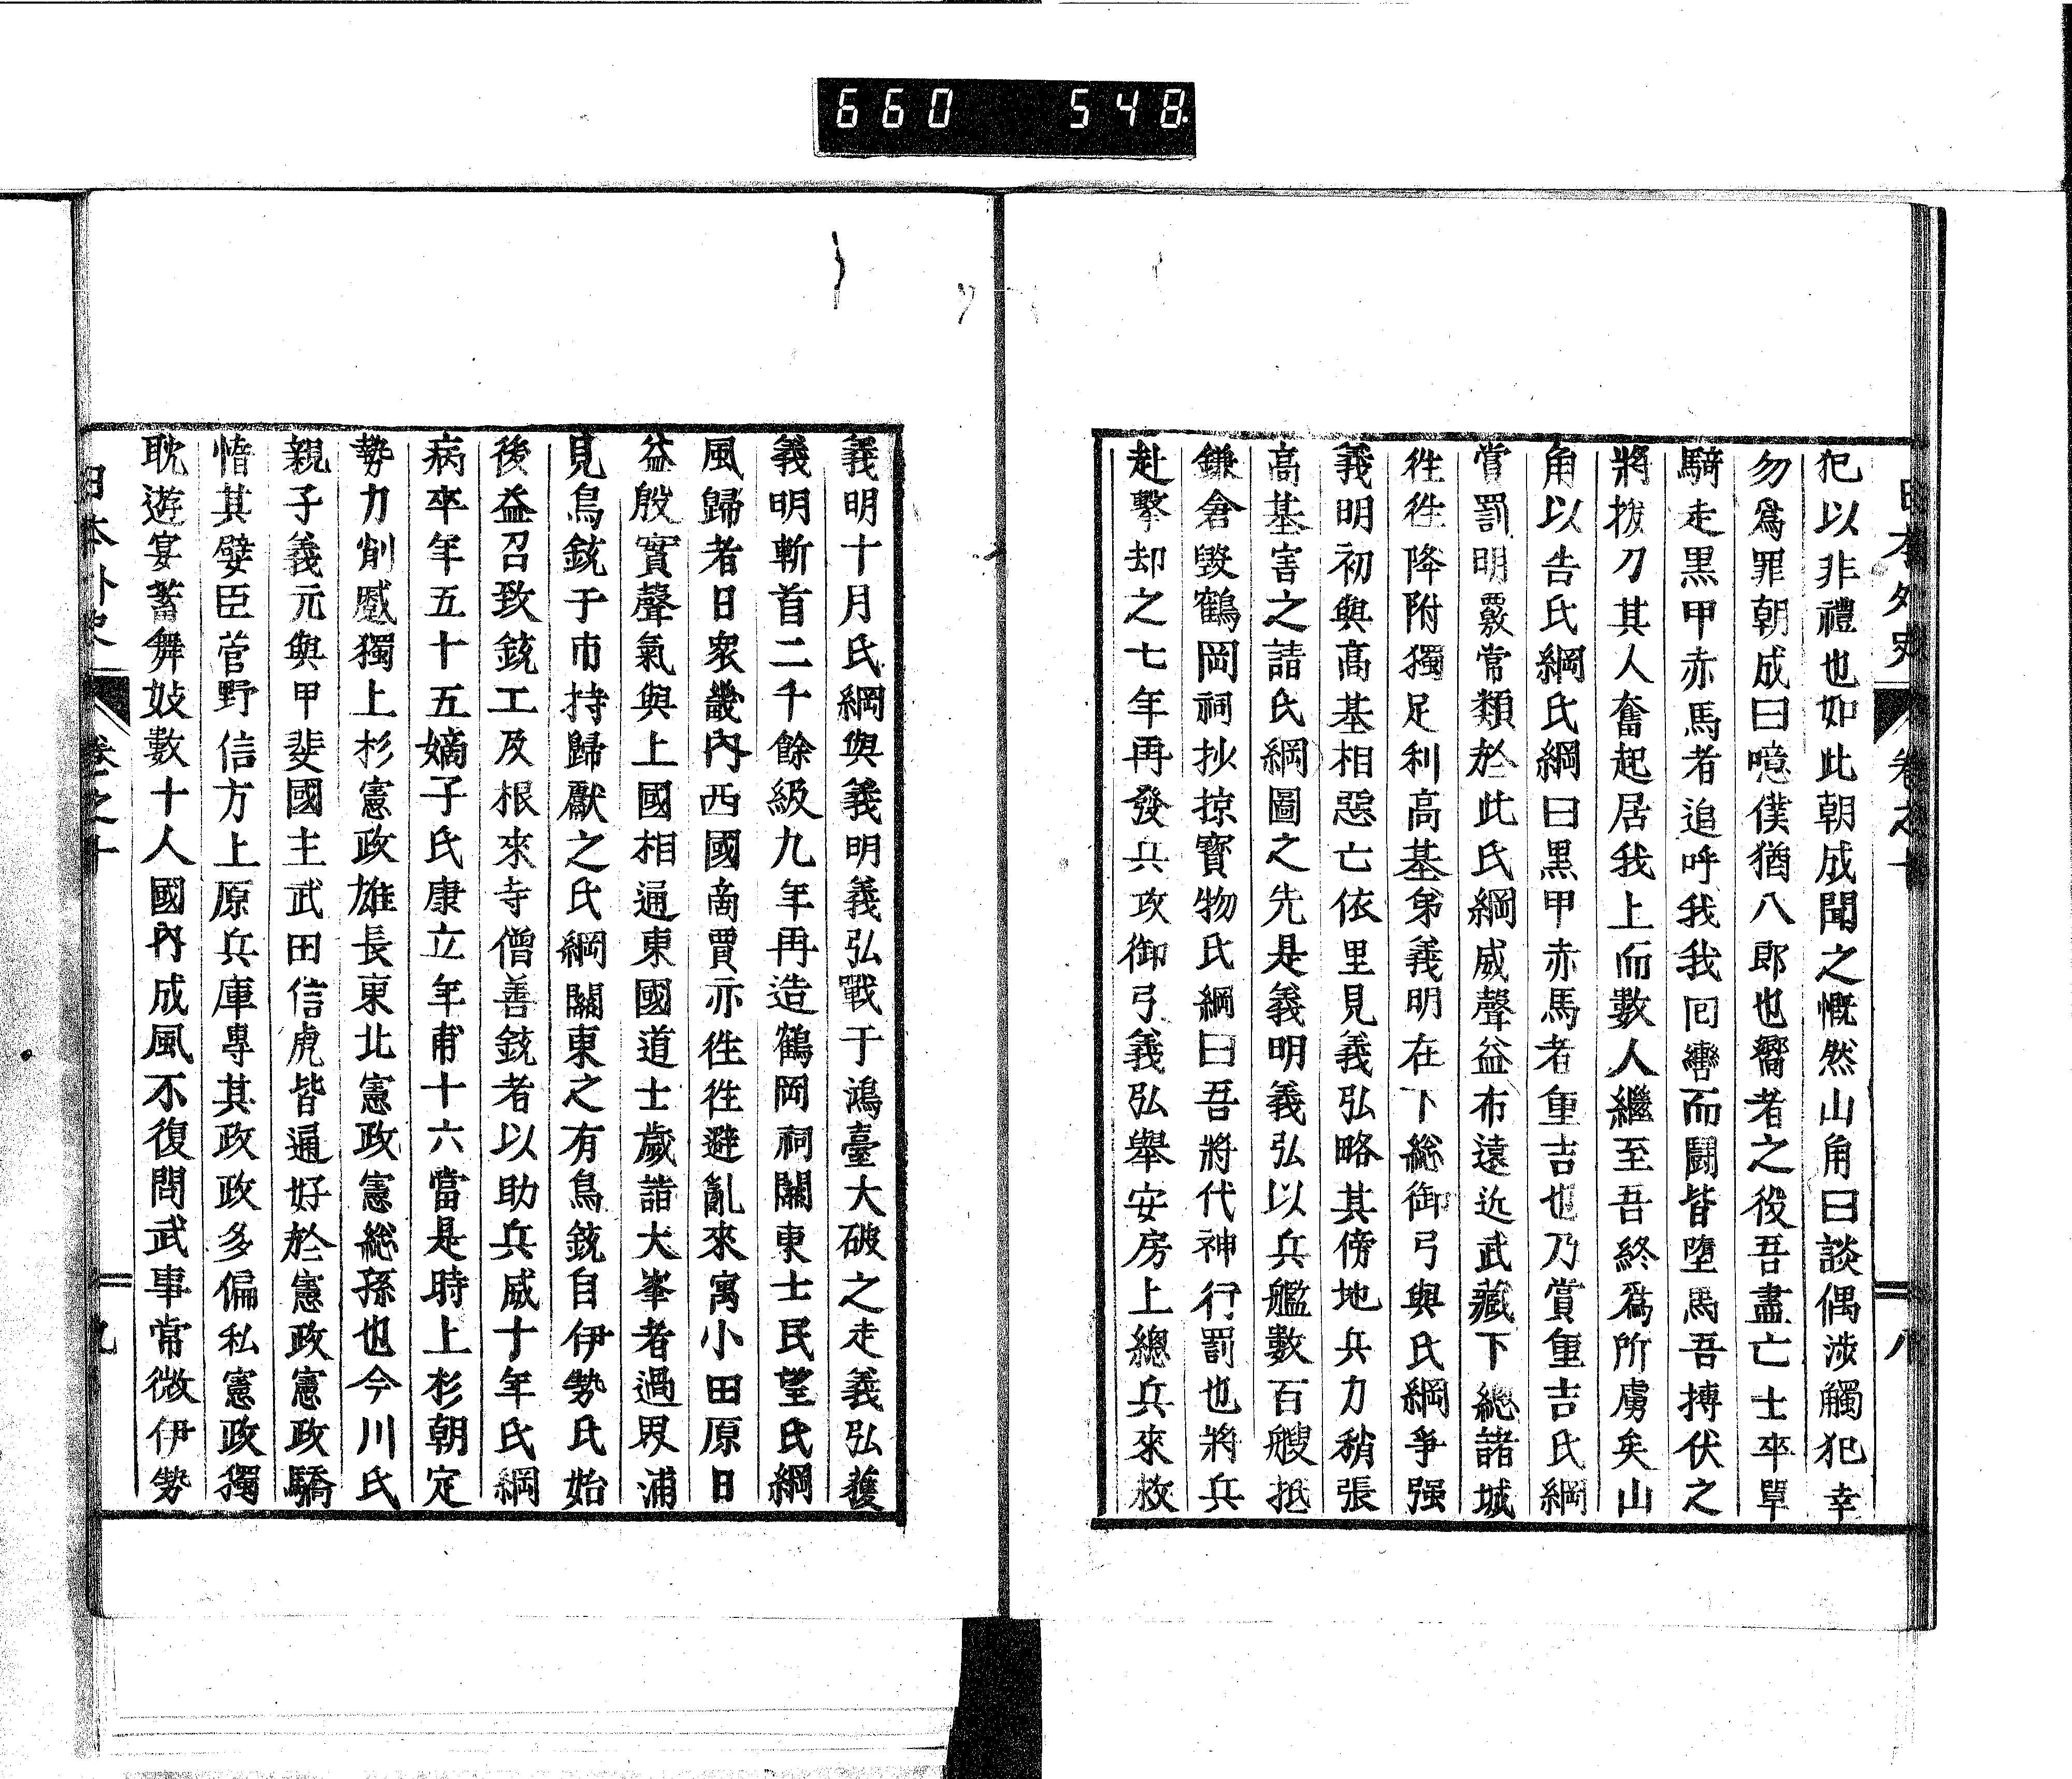 660 548
日本外史 卷之十 八
犯以非禮也如此朝成聞之慨然山角曰談偶涉觸犯幸
勿爲罪朝成曰噫僕猶八郎也嚮者之役吾盡亡士卒單
騎走黑甲赤馬者追呼我我回轡而鬪皆墮馬吾搏伏之
將拔刀其人奮起居我上而數人繼至吾終爲所虜矣山
角以告氏綱氏綱曰黑甲赤馬者重吉也乃賞重吉氏綱
賞罰明覈常類於此氏綱威聲益布遠近武藏下總諸城
徃徃降附獨足利高基弟義明在下総御弓與氏綱爭强
義明初與高基相惡亡依里見義弘略其傍地兵力稍張
高基害之請氏綱圖之先是義明義弘以兵艦數百艘抵
鎌倉毀鶴岡祠抄掠寶物氏綱曰吾將代神行罰也將兵
赴擊却之七年再發兵攻御弓義弘舉安房上總兵來救
義明十月氏綱與義明義弘戰于鴻臺大破之走義弘獲
義明斬首二千餘級九年再造鶴岡祠關東士民望氏綱
風歸者日衆畿內西國商賈亦徃徃避亂來寓小田原日
益殷實聲氣與上國相通東國道士歲詣大峯者過界浦
見鳥銃于市持歸獻之氏綱關東之有鳥銃自伊勢氏始
後益召致銃工及根來寺僧善銃者以助兵威十年氏綱
病卒年五十五嫡子氏康立年甫十六當是時上杉朝定
勢力削蹙獨上杉憲政雄長東北憲政憲総孫也今川氏
親子義元與甲斐國主武田信虎皆通好於憲政憲政驕
惰其嬖臣菅野信方上原兵庫專其政政多偏私憲政獨
耽遊宴蓄舞妓數十人國內成風不復問武事常微伊勢
日本外史 卷之十 九